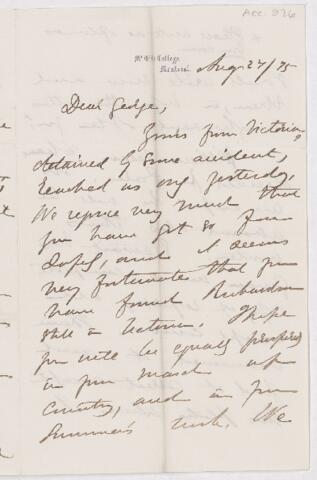 Acc. 976
McGill College
Montreal
Aug 27/75
Dear George,
Yours from Victoria,
detained by some accident,
reached us only yesterday.
We rejoice very much that
you have got so far
safely, and it seems
very fortunate that you
have found Richardson
still in Victoria. I hope
you will be equally prospered
in your march up
country, and in your
Summer's work. We